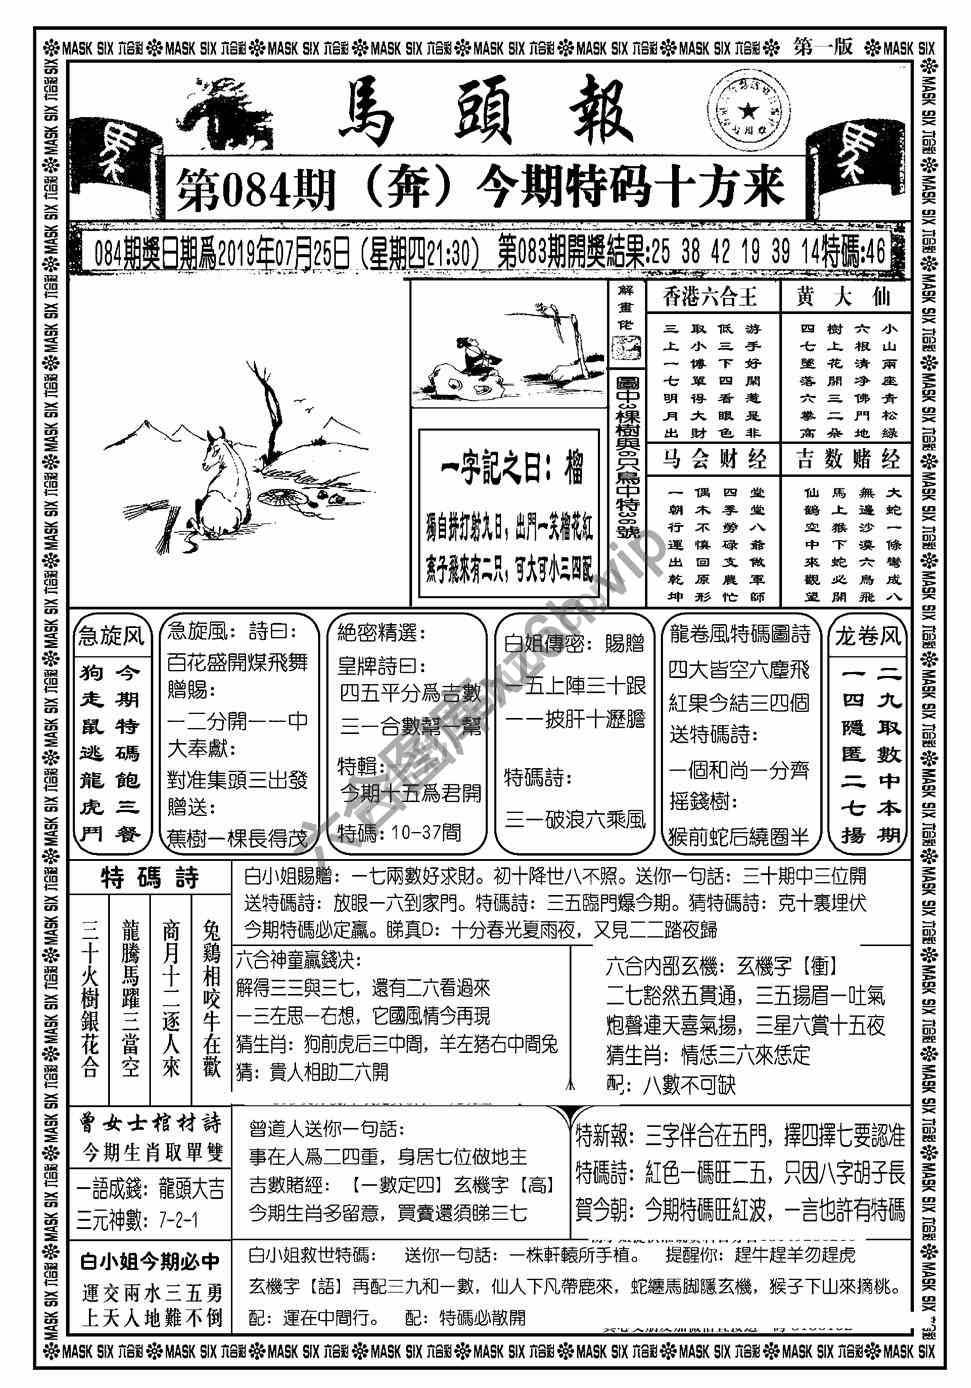 MASK SIX 六合彩 MASK SIX 六合彩 MASK SIX 六合彩 MASK SIX 六合彩 MASK SIX 六合彩 MASK SIX 六合彩 MASK SIX 六合彩 第一版 MASK SIX
馬頭報
第084期（奔）今期特码十方来
084期獎日期爲2019年07月25日（星期四21:30） 第083期開獎結果:25 38 42 19 39 14特碼:46
解畫佬
圖中3棵樹與6只鳥中特36號
一字記之曰：榴
獨自拚打射九日，出門一笑榴花紅
燕子飛來有二只，可大可小三四配
香港六合王
游手好閑惹是非
低三下四看眼色
取小博單得大財
三上一七明月出
黄大仙
小山兩座青松綠
六根清净佛門地
樹上花開二三朵
四七墜落六攀高
马会财经
堂堂八爺做軍師
四季勞碌支農忙
偶木不慎回原形
一朝行運出乾坤
吉数赌经
大蛇一條彎成八
無邊沙漠六鳥飛
馬上猴下蛇必開
仙鶴空中來觀望
急旋风
今期特碼飽三餐
狗走鼠逃龍虎鬥
急旋風：詩曰：
百花盛開煤飛舞
贈賜：
一二分開一一中
大奉獻：
對准集頭三出發
贈送：
蕉樹一棵長得茂
絶密精選：
皇牌詩曰：
四五平分爲吉數
三一合數幫一幫
特輯：
今期十五爲君開
特碼：10-37間
白姐傳密：賜贈
一五上陣三十跟
一一披肝十瀝膽
特碼詩：
三一破浪六乘風
龍卷風特碼圖詩
四大皆空六塵飛
紅果今結三四個
送特碼詩：
一個和尚一分齊
摇錢樹：
猴前蛇后繞圈半
龙卷风
二九取數中本期
一四隱匿二七揚
特碼詩
兔鷄相咬牛在歡
商月十二逐人來
龍騰馬躍三當空
三十火樹銀花合
白小姐賜贈：一七兩數好求財。初十降世八不照。送你一句話：三十期中三位開
送特碼詩：放眼一六到家門。特碼詩：三五臨門爆今期。猜特碼詩：克十裏埋伏
今期特碼必定贏。睇真D：十分春光夏雨夜，又見二二踏夜歸
六合神童贏錢决：
解得三三與三七，還有二六看過來
一三左思一右想，它國風情今再現
猜生肖：狗前虎后三中間，羊左猪右中間兔
猜：貴人相助二六開
六合内部玄機：玄機字【衝】
二七豁然五貫通，三五揚眉一吐氣
炮聲連天喜氣揚，三星六賞十五夜
猜生肖：情恁三六來恁定
配：八數不可缺
曾女士棺材詩
今期生肖取單雙
一語成錢：龍頭大吉
三元神數：7-2-1
白小姐今期必中
運交兩水三五勇
上天入地難不倒
曾道人送你一句話：
事在人爲二四重，身居七位做地主
吉數賭經：【一數定四】玄機字【高】
今期生肖多留意，買賣還須睇三七
特新報：三字伴合在五門，擇四擇七要認准
特碼詩：紅色一碼旺二五，只因八字胡子長
賀今朝：今期特碼旺紅波，一言也許有特碼
白小姐救世特碼：　送你一句話：一株軒轅所手植。　提醒你：趕牛趕羊勿趕虎
玄機字【語】再配三九和一數，仙人下凡帶鹿來，蛇纏馬脚隱玄機，猴子下山來摘桃。
配：運在中間行。　配：特碼必散開
六合图库xz6h.vip
MASK SIX 六合彩 MASK SIX 六合彩 MASK SIX 六合彩 MASK SIX 六合彩 MASK SIX 六合彩 MASK SIX 六合彩 MASK SIX 六合彩 MASK SIX 六合彩 MASK SIX